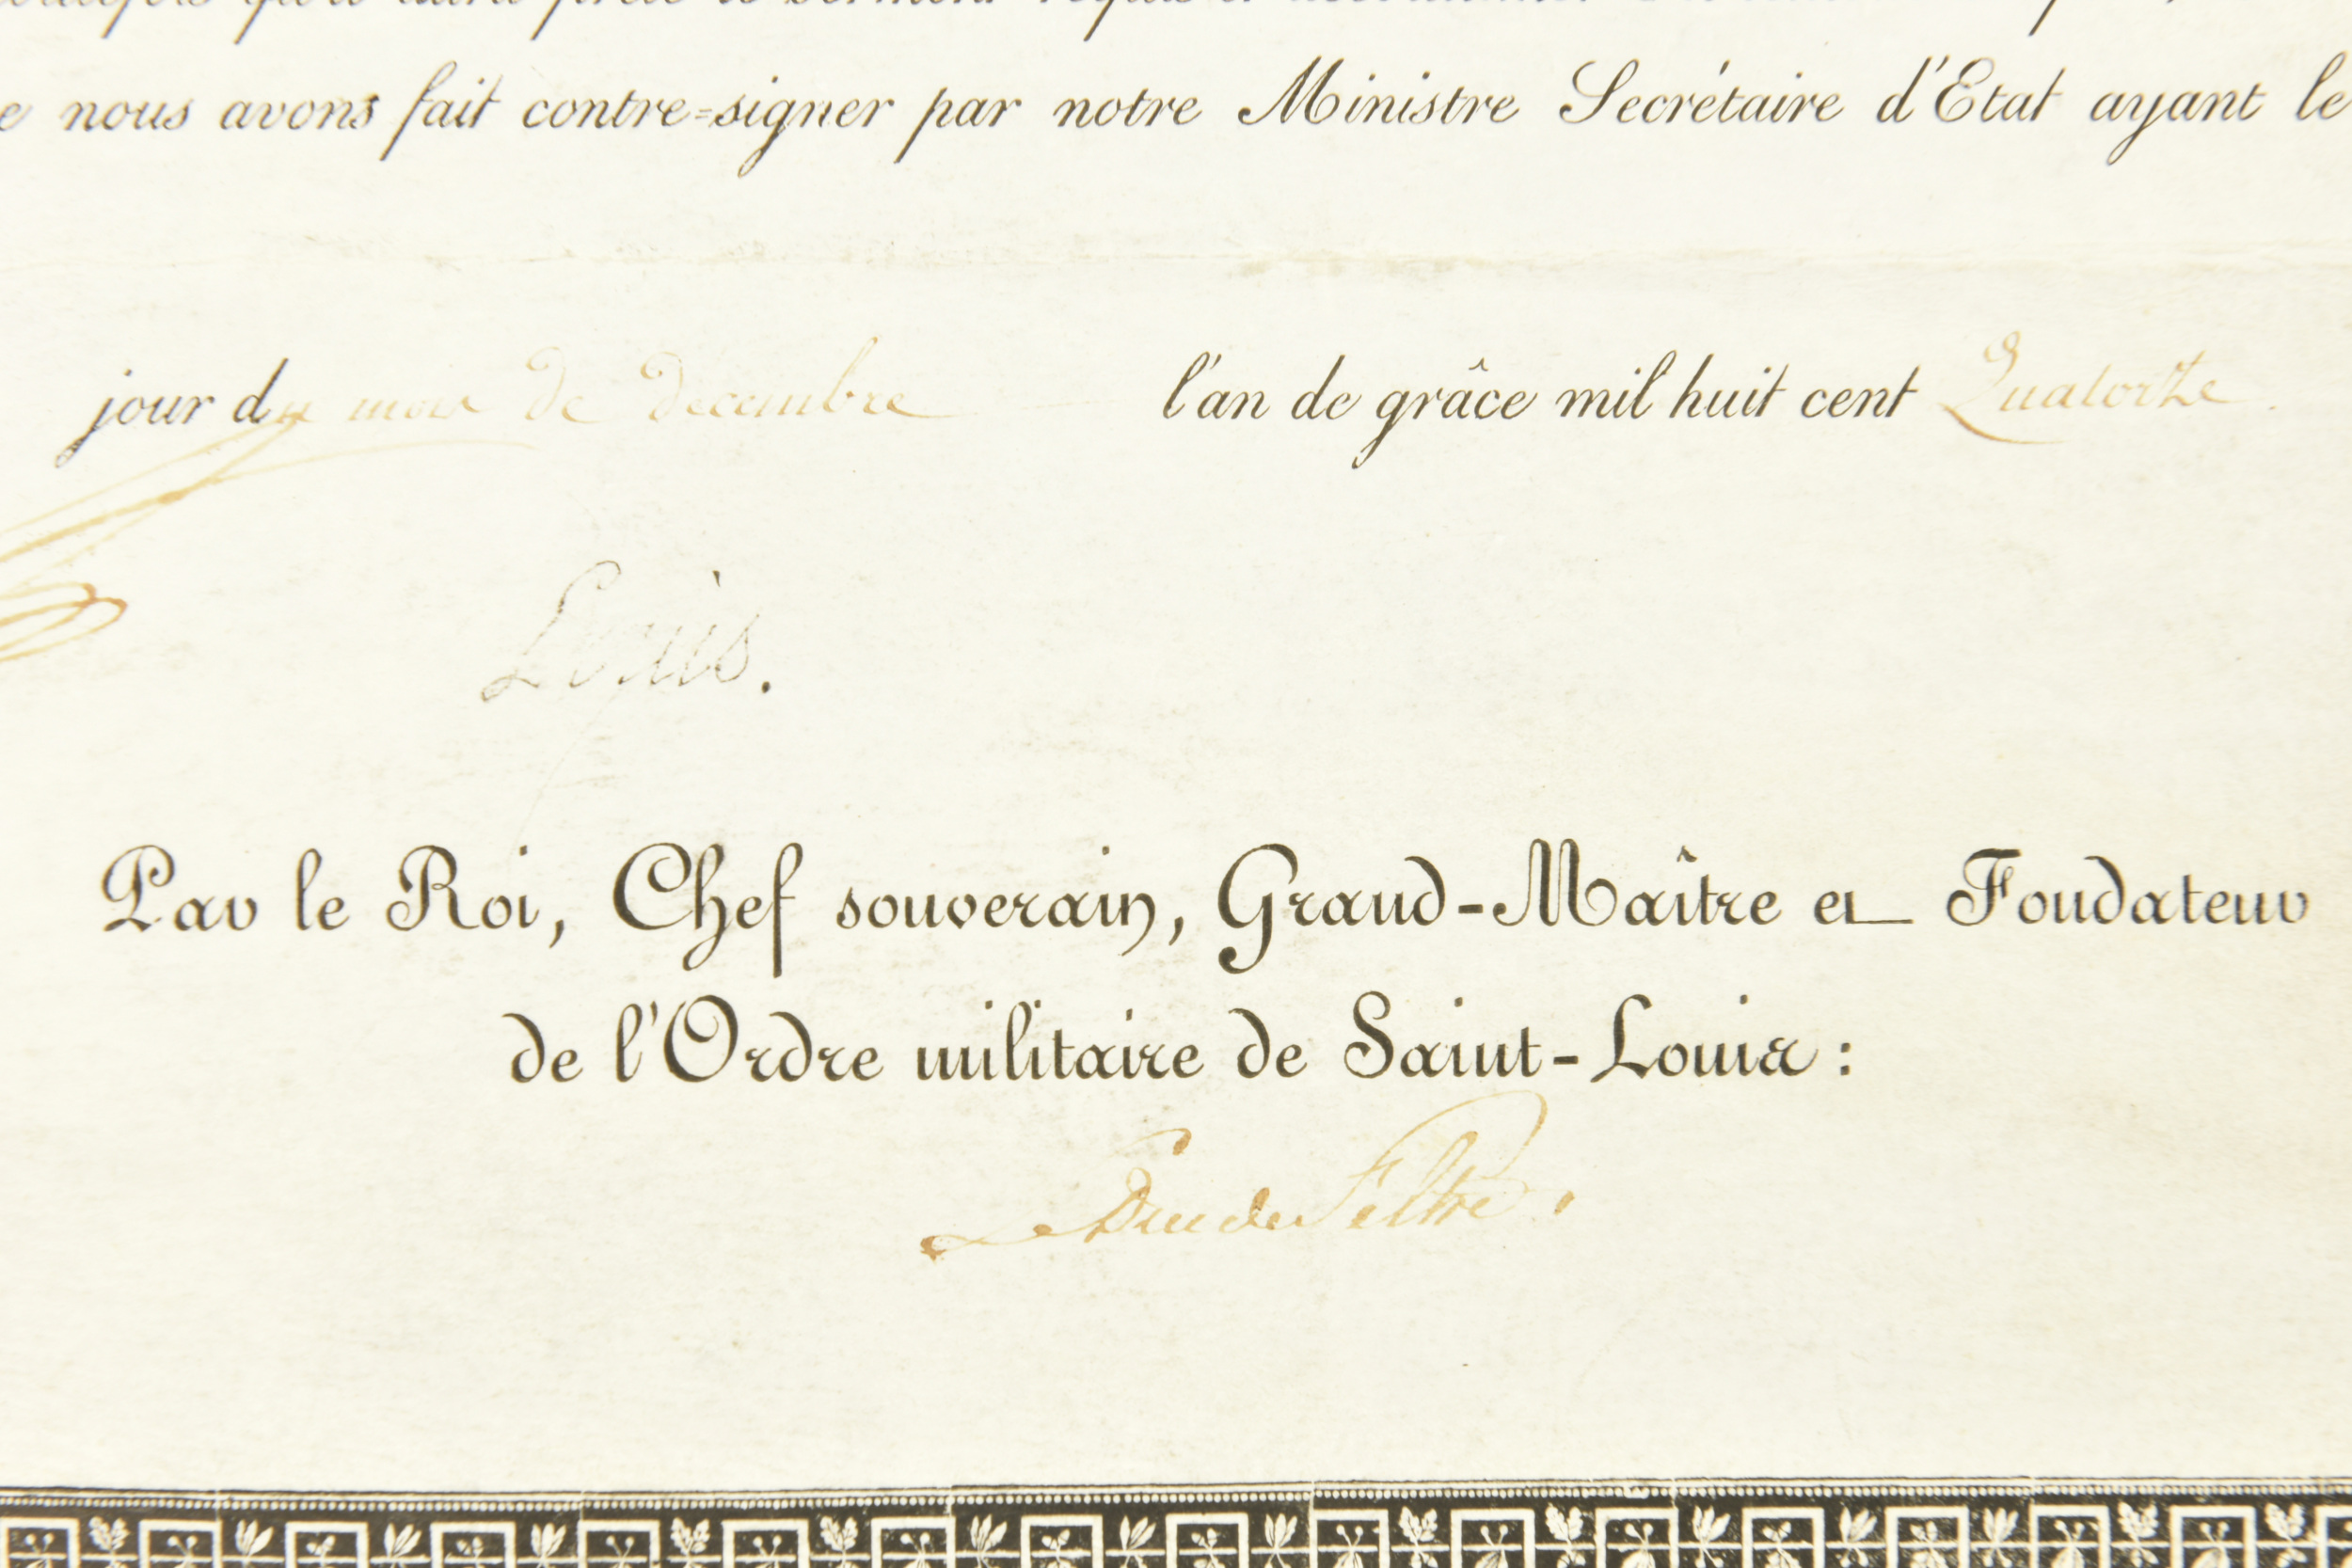 e nous avons fait contre=signer par notre Ministre Secrétaire d'Etat ayant le
jour du mois de decembre l'an de grâce mil huit cent Quatorze.
Louis.
Par le Roi, Chef souverain, Grand-Maître et Fondateur
de l'Ordre militaire de Saint-Louis :
Le Duc de Feltre.